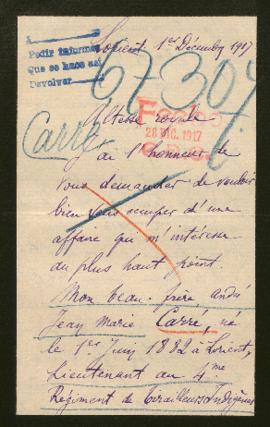 Lorient 1er Décembre 1917
A
Pedir informes
Que se hace así
Devolver
67307
28 DIC. 1917
Carré
Altesse royale
J'ai l'honneur de
vous demander de vouloir
bien vous occuper d'une
affaire qui m'intéresse
au plus haut point.
Mon beau-frère, André
Jean Marie Carré, né
le 1er Juin 1882 à Lorient,
Lieutenant au 4me
Régiment de tirailleurs Indigènes